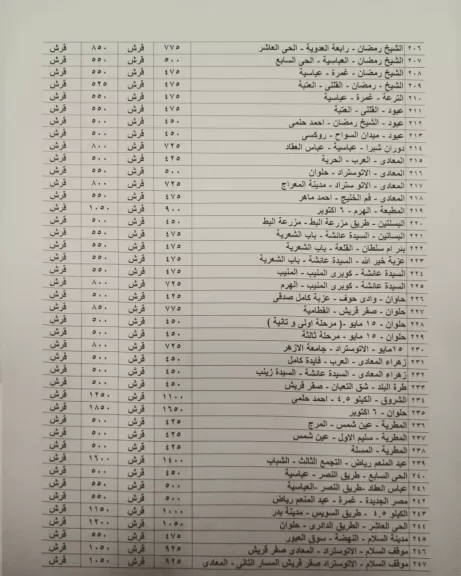 ٢٠٦ الشيخ رمضان - رابعة العدوية - الحى العاشر ٧٧٥ قرش ٨٥٠ قرش
٢٠٧ الشيخ رمضان - العباسية - الحى السابع ٥٠٠ قرش ٥٥٠ قرش
٢٠٨ الشيخ رمضان - غمرة - عباسية ٤٧٥ قرش ٥٥٠ قرش
٢٠٩ الشيخ - رمضان - القللى - العتبة ٤٧٥ قرش ٥٢٥ قرش
٢١٠ الترعة - غمرة - عباسية ٤٧٥ قرش ٥٥٠ قرش
٢١١ عبود - القللى - العتبة ٤٧٥ قرش ٥٥٠ قرش
٢١٢ عبود - الشيخ رمضان - احمد حلمى ٤٥٠ قرش ٥٠٠ قرش
٢١٣ عبود - ميدان السواح - روكسى ٤٥٠ قرش ٥٠٠ قرش
٢١٤ دوران شبرا - عباسية - عباس العقاد ٧٢٥ قرش ٨٠٠ قرش
٢١٥ المعادى - العرب - الحرية ٤٢٥ قرش ٥٠٠ قرش
٢١٦ المعادى - الاتوستراد - حلوان ٥٠٠ قرش ٥٥٠ قرش
٢١٧ المعادى - الاتو ستراد - مدينة المعراج ٧٢٥ قرش ٨٠٠ قرش
٢١٨ المعادى - فم الخليج - احمد ماهر ٤٧٥ قرش ٥٥٠ قرش
٢١٩ المطبعة - الهرم - ٦ اكتوبر ٩٠٠ قرش ١٠٥٠ قرش
٢٢٠ البساتين - طريق مزرعة البط - مزرعة البط ٤٥٠ قرش ٥٠٠ قرش
٢٢١ البساتين - السيدة عائشة - باب الشعرية ٤٧٥ قرش ٥٥٠ قرش
٢٢٢ بئر ام سلطان - القلعة - باب الشعرية ٤٧٥ قرش ٥٥٠ قرش
٢٢٣ عزبة خير الله - السيدة عائشة - باب الشعرية ٤٧٥ قرش ٥٥٠ قرش
٢٢٤ السيدة عائشة - كوبرى المنيب - المنيب ٤٧٥ قرش ٥٥٠ قرش
٢٢٥ السيدة عائشة - كوبرى المنيب - الهرم ٧٢٥ قرش ٨٠٠ قرش
٢٢٦ حلوان - وادى حوف - عزبة كامل صدقى ٤٥٠ قرش ٥٠٠ قرش
٢٢٧ حلوان - صقر قريش - القطامية ٧٧٥ قرش ٨٥٠ قرش
٢٢٨ حلوان - ١٥ مايو - ( مرحلة اولى و ثانية ) ٤٥٠ قرش ٥٠٠ قرش
٢٢٩ حلوان - ١٥ مايو - مرحلة ثالثة ٤٥٠ قرش ٥٠٠ قرش
٢٣٠ ١٥مايو - الاتوستراد - جامعة الازهر ٧٢٥ قرش ٨٠٠ قرش
٢٣١ زهراء المعادى - العرب - فايدة كامل ٤٥٠ قرش ٥٠٠ قرش
٢٣٢ زهراء المعادى - السيدة عائشة - السيدة زينب ٤٥٠ قرش ٥٠٠ قرش
٢٣٣ طرة البلد - شق الثعبان - صقر قريش ٤٥٠ قرش ٥٠٠ قرش
٢٣٤ الشروق - الكيلو ٤.٥ - احمد حلمى ١١٠٠ قرش ١٢٥٠ قرش
٢٣٥ حلوان - ٦ اكتوبر ١٦٥٠ قرش ١٨٥٠ قرش
٢٣٦ المطرية - عين شمس - المرج ٤٢٥ قرش ٥٠٠ قرش
٢٣٧ المطرية - سليم الاول - عين شمس ٤٢٥ قرش ٥٠٠ قرش
٢٣٨ المطرية - المسلة ٤٢٥ قرش ٥٠٠ قرش
٢٣٩ عبد المنعم رياض - التجمع الثالث - الشباب ١٤٠٠ قرش ١٦٠٠ قرش
٢٤٠ الحى السابع - طريق النصر - عباسية ٤٥٠ قرش ٥٠٠ قرش
٢٤١ عباس العقاد -طريق النصر -العباسية ٤٥٠ قرش ٥٠٠ قرش
٢٤٢ مصر الجديدة - غمرة - عبد المنعم رياض ٥٠٠ قرش ٥٥٠ قرش
٢٤٣ الكيلو ٤.٥ - طريق السويس - مدينة بدر ١٠٠٠ قرش ١١٥٠ قرش
٢٤٤ الحى العاشر - الطريق الدائرى - حلوان ١٠٥٠ قرش ١٢٠٠ قرش
٢٤٥ مدينة السلام - النهضة - سوق العبور ٤٧٥ قرش ٥٥٠ قرش
٢٤٦ موقف السلام - الاتوستراد - المعادى صقر قريش ٩٢٥ قرش ١٠٥٠ قرش
٢٤٧ موقف السلام - الاتوستراد صقر قريش المسار الثانى - المعادى ٩٢٥ قرش ١٠٥٠ قرش